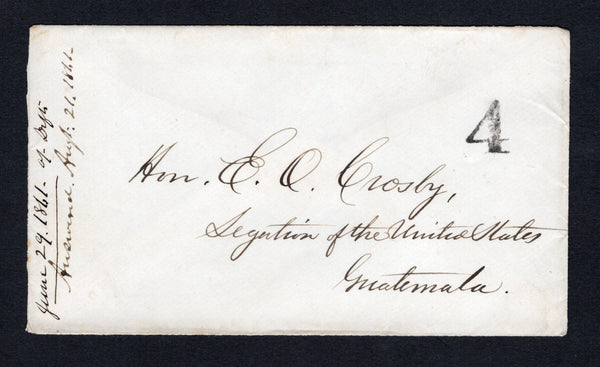 June 29. 1861. of Dept.
Answered. Aug. 21. 1861.
4
Hon. E. O. Crosby,
Legation of the United States
Guatemala.